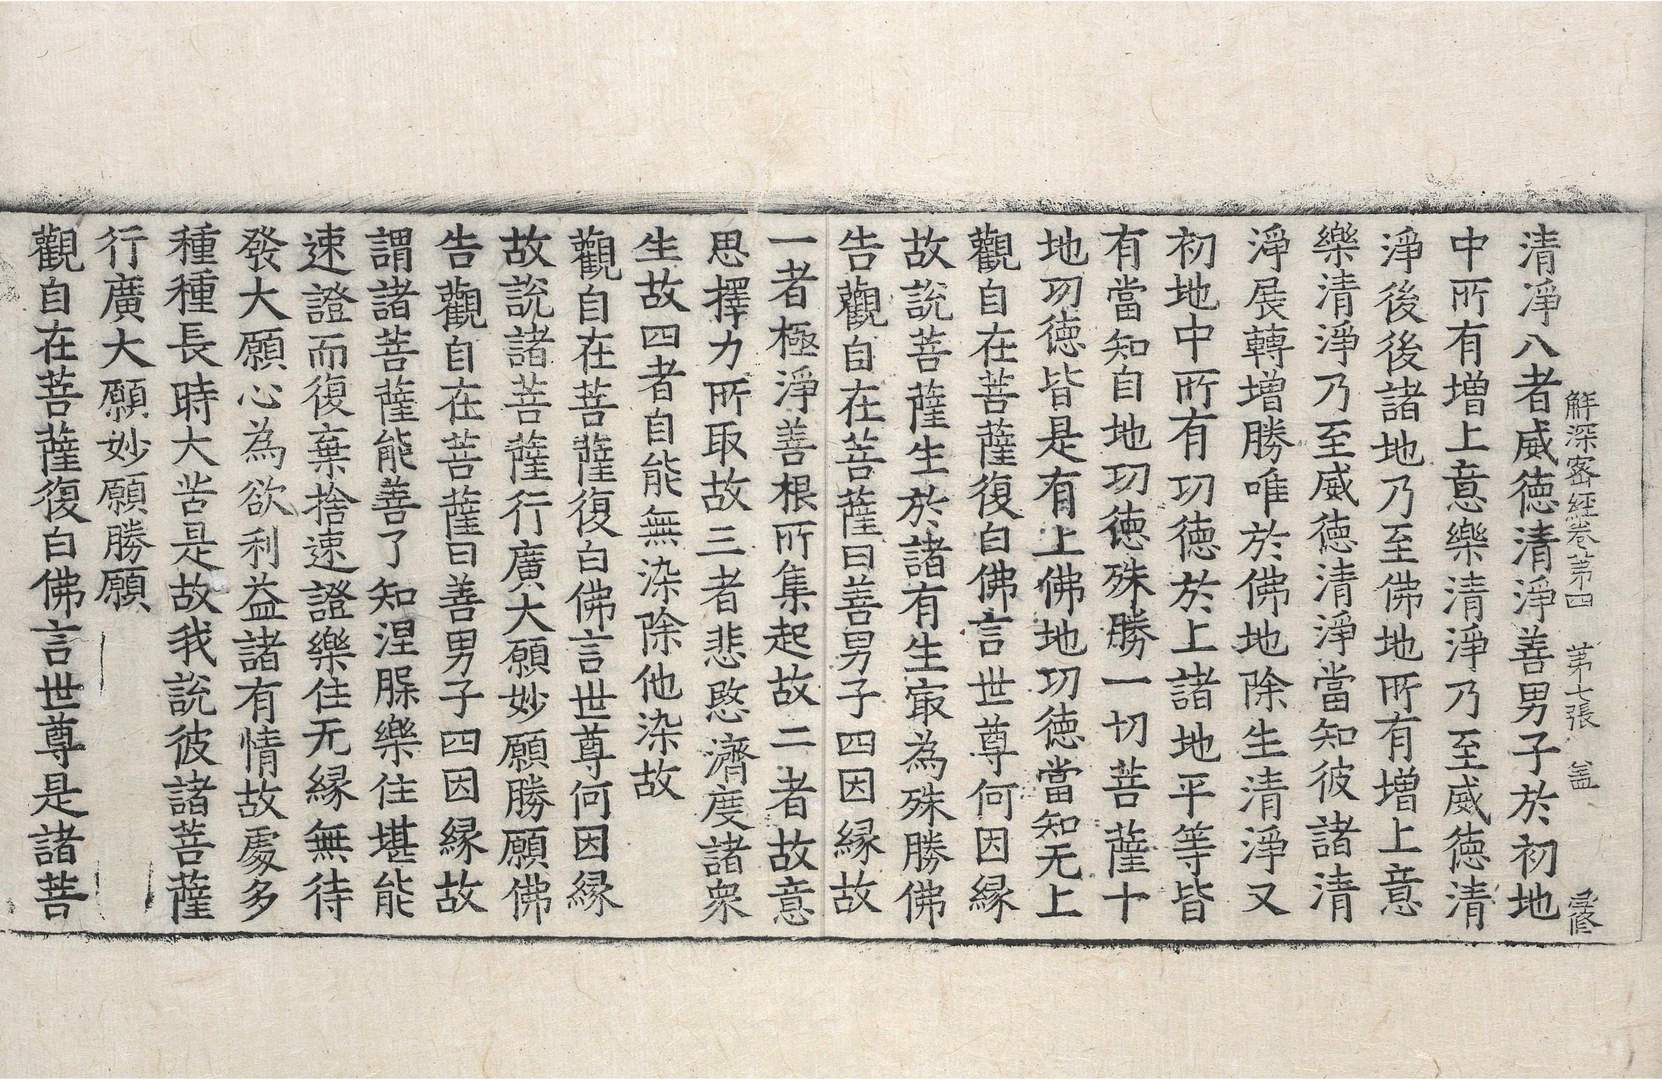 解深密經卷第四 第七張 盖 修
清淨八者威德清淨善男子於初地
中所有增上意樂清淨乃至威德清
淨後後諸地乃至佛地所有增上意
樂清淨乃至威德清淨當知彼諸清
淨展轉增勝唯於佛地除生清淨又
初地中所有功德於上諸地平等皆
有當知自地功徳殊勝一切菩薩十
地功徳皆是有上佛地功徳當知无上
觀自在菩薩復白佛言世尊何因縁
故說菩薩生於諸有生㝡為殊勝佛
告觀自在菩薩曰善男子四因縁故
一者極淨善根所集起故二者故意
思擇力所取故三者悲愍濟度諸衆
生故四者自能無染除他染故
觀自在菩薩復白佛言世尊何因縁
故說諸菩薩行廣大願妙願勝願佛
告觀自在菩薩曰善男子四因縁故
謂諸菩薩能善了知涅槃樂住堪能
速證而復棄捨速證樂住无縁無待
發大願心為欲利益諸有情故處多
種種長時大苦是故我說彼諸菩薩
行廣大願妙願勝願
觀自在菩薩復白佛言世尊是諸菩